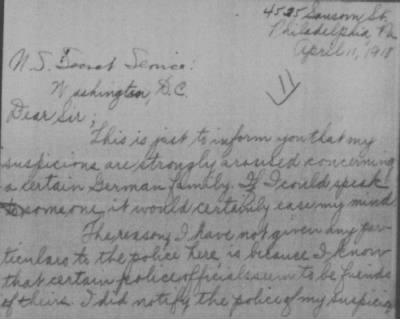 4525 Sansom St.
Philadelphia, Pa.
April 11, 1918
U.S. Secret Service:
Washington, D.C.
Dear Sir;
This is just to inform you that my
suspicions are strongly aroused concerning
a certain German family. If I could speak
to someone, it would certainly ease my mind
The reason I have not given any par-
ticulars to the police here is because I know
that certain police officials seem to be friends
of theirs. I did notify the police of my suspicions